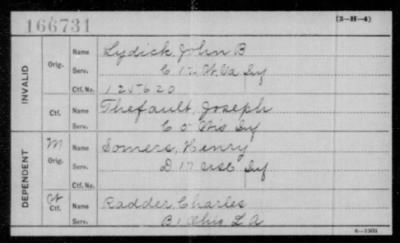 166731 (3-H-4)
INVALID
Orig. Name Lydick, John B
Serv. C 12 W.Va Inf
Ctf. No. 125620
Ctf. Name Thefault, Joseph
Serv. C 5 Wis Inf
DEPENDENT
M Orig. Name Somers, Henry
Serv. D 17 Inf
Ctf. No.
Ctf. Name Radder, Charles
Serv. B 1 Ohio L A
6-1303